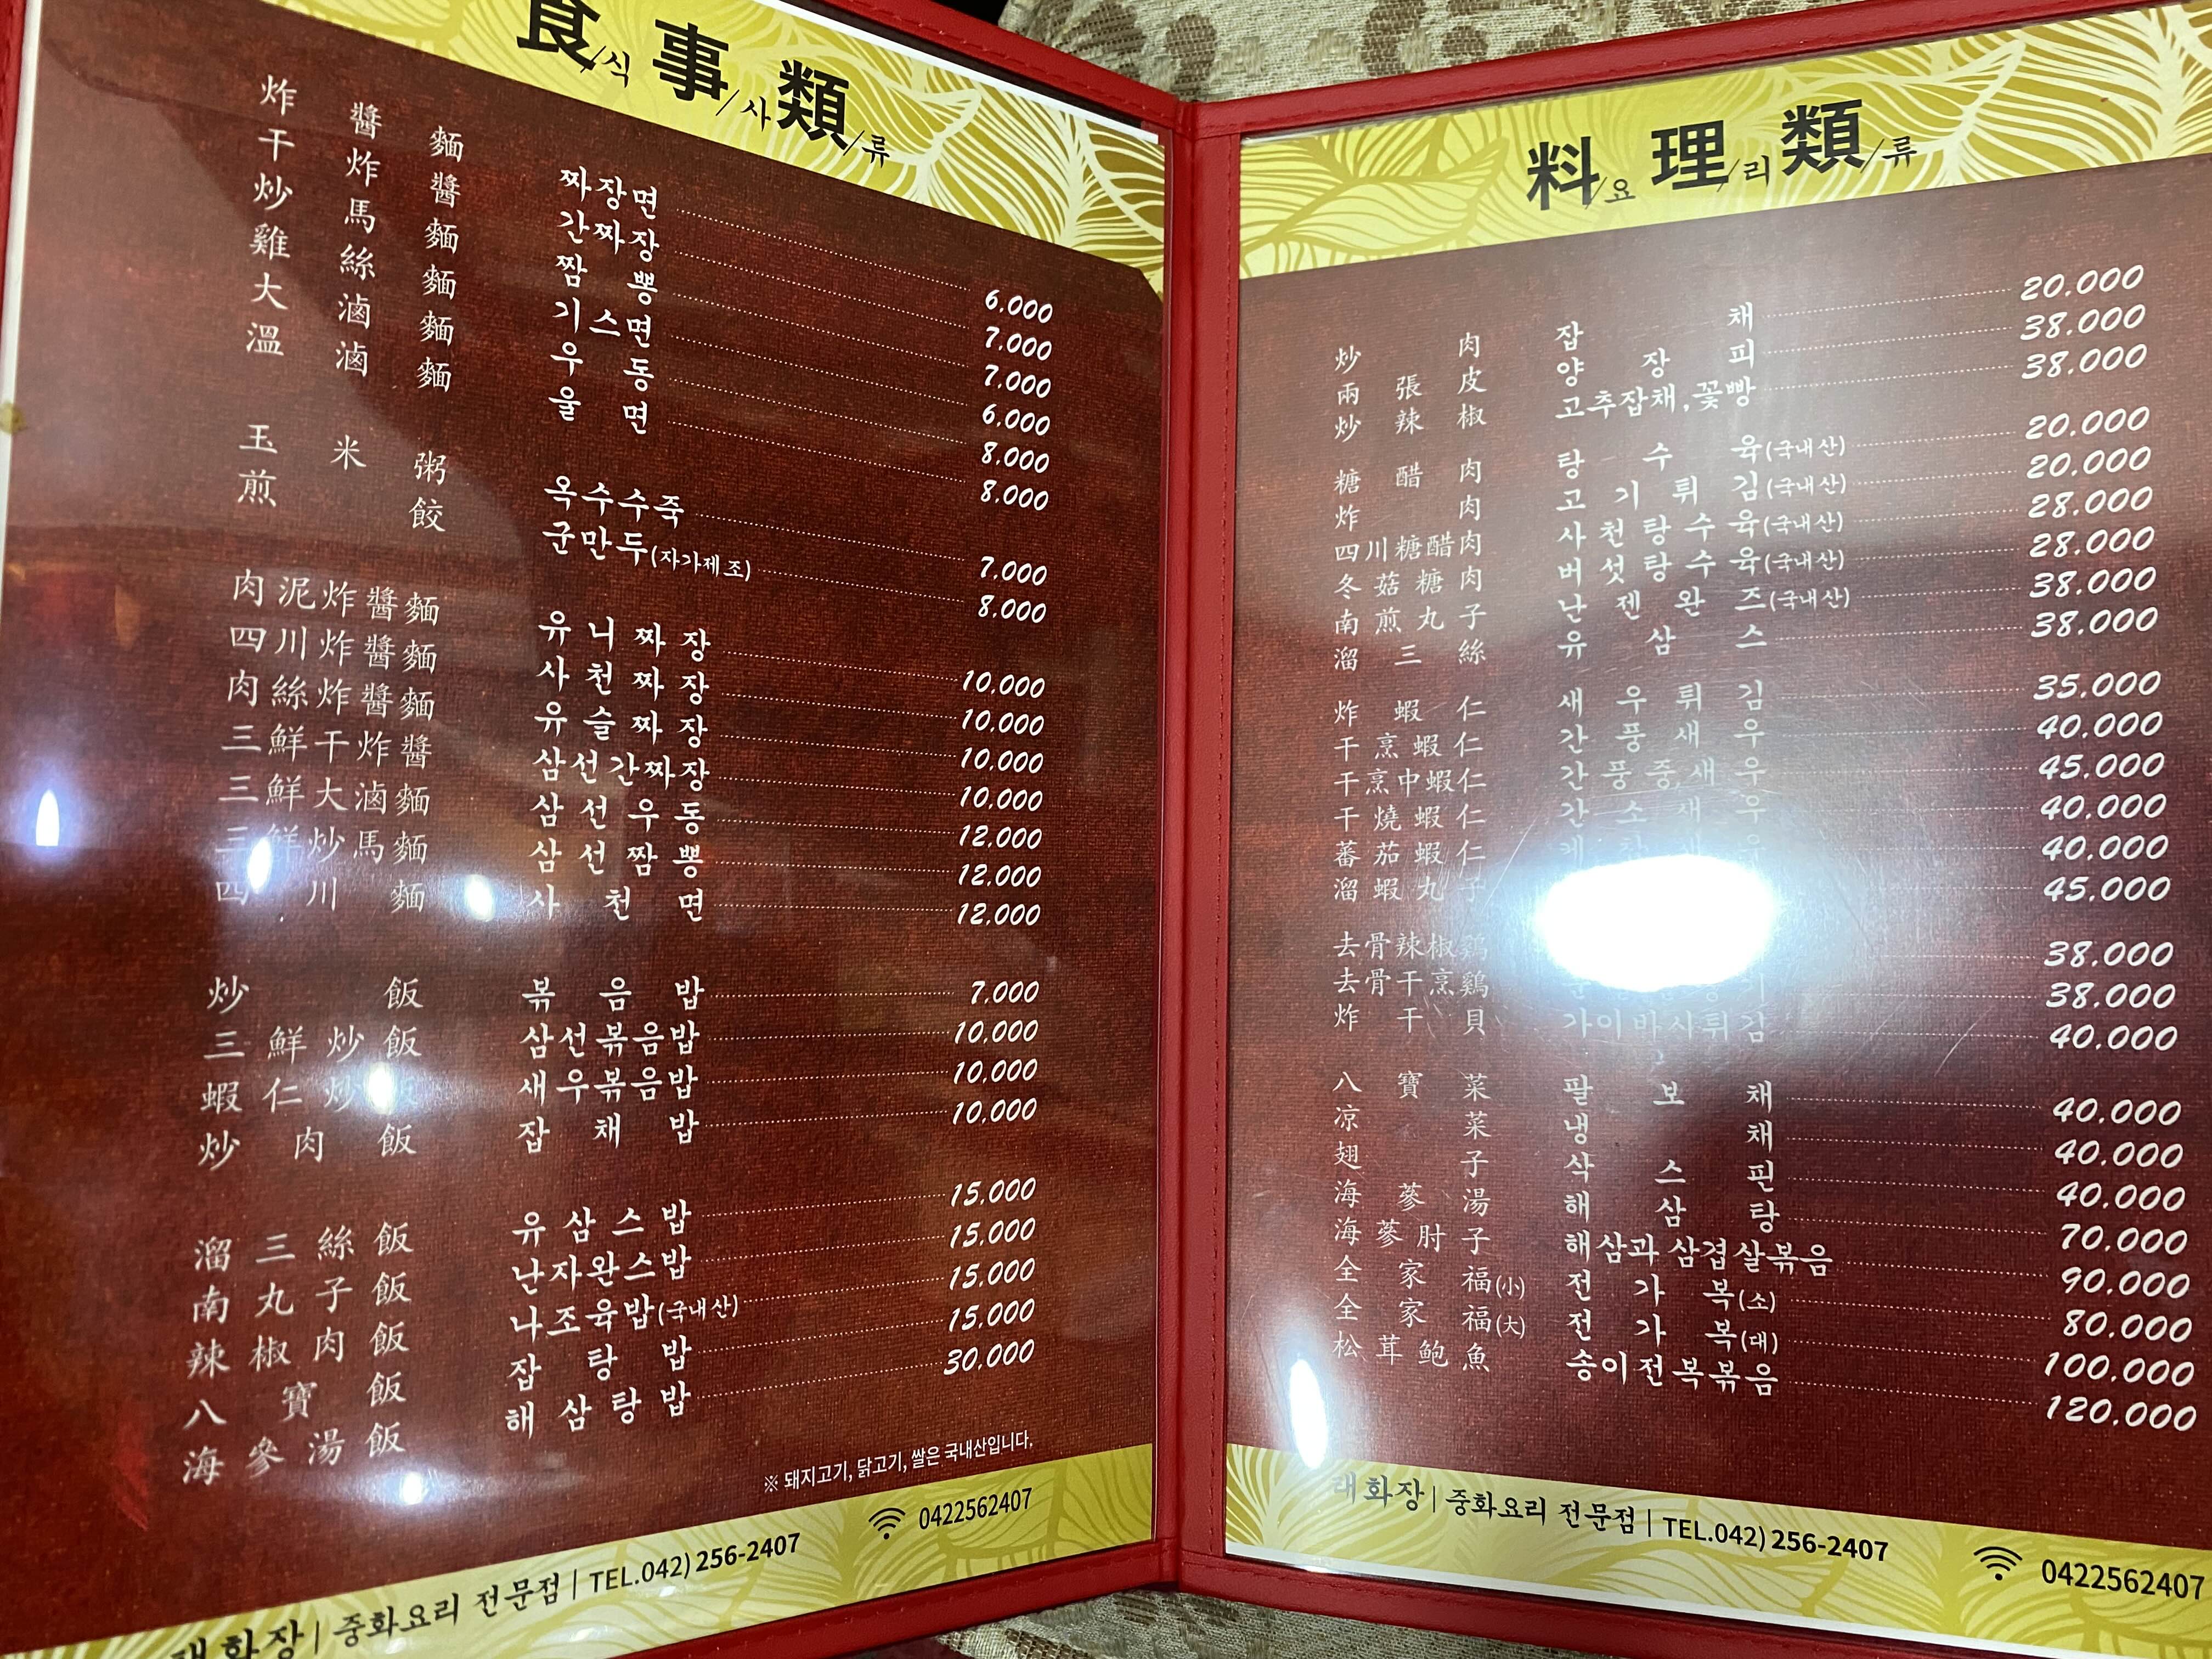 食/식 事/사 類/류
炸醬麵 짜장면 6.000
干炸醬 간짜장 7.000
炒馬麵 짬뽕 7.000
雞絲麵 기스면 6.000
大滷麵 우동 8.000
溫滷麵 울면 8.000
玉米粥 옥수수죽 7.000
煎餃 군만두(자가제조) 8.000
肉泥炸醬麵 유니짜장 10.000
四川炸醬麵 사천짜장 10.000
肉絲炸醬麵 유슬짜장 10.000
三鮮干炸醬 삼선간짜장 10.000
三鮮大滷麵 삼선우동 12.000
三鮮炒馬麵 삼선짬뽕 12.000
四川麵 사천면 12.000
炒飯 볶음밥 7.000
三鮮炒飯 삼선볶음밥 10.000
蝦仁炒飯 새우볶음밥 10.000
炒肉飯 잡채밥 10.000
溜三絲飯 유삼스밥 15.000
南丸子飯 난자완스밥 15.000
辣椒肉飯 나조육밥(국내산) 15.000
八寶飯 잡탕밥 15.000
海參湯飯 해삼탕밥 30.000
※ 돼지고기, 닭고기, 쌀은 국내산입니다.
태화장 | 중화요리 전문점 | TEL.042) 256-2407 0422562407
料/요 理/리 類/류
炒肉 잡채 20.000
兩張皮 양장피 38.000
炒辣椒 고추잡채,꽃빵 38.000
糖醋肉 탕수육(국내산) 20.000
炸肉 고기튀김(국내산) 20.000
四川糖醋肉 사천탕수육(국내산) 28.000
冬菇糖肉 버섯탕수육(국내산) 28.000
南煎丸子 난젠완즈(국내산) 38.000
溜三絲 유삼스 38.000
炸蝦仁 새우튀김 35.000
干烹蝦仁 간풍새우 40.000
干烹中蝦仁 간풍중새우 45.000
干燒蝦仁 간소새우 40.000
蕃茄蝦仁 40.000
溜蝦丸子 45.000
去骨辣椒鷄 38.000
去骨干烹鷄 38.000
炸干貝 가이바사튀김 40.000
八寶菜 팔보채 40.000
凉菜 냉채 40.000
翅子 삭스핀 40.000
海蔘湯 해삼탕 70.000
海蔘肘子 해삼과삼겹살볶음 90.000
全家福(小) 전가복(소) 80.000
全家福(大) 전가복(대) 100.000
松茸鮑魚 송이전복볶음 120.000
태화장 | 중화요리 전문점 | TEL.042) 256-2407 0422562407